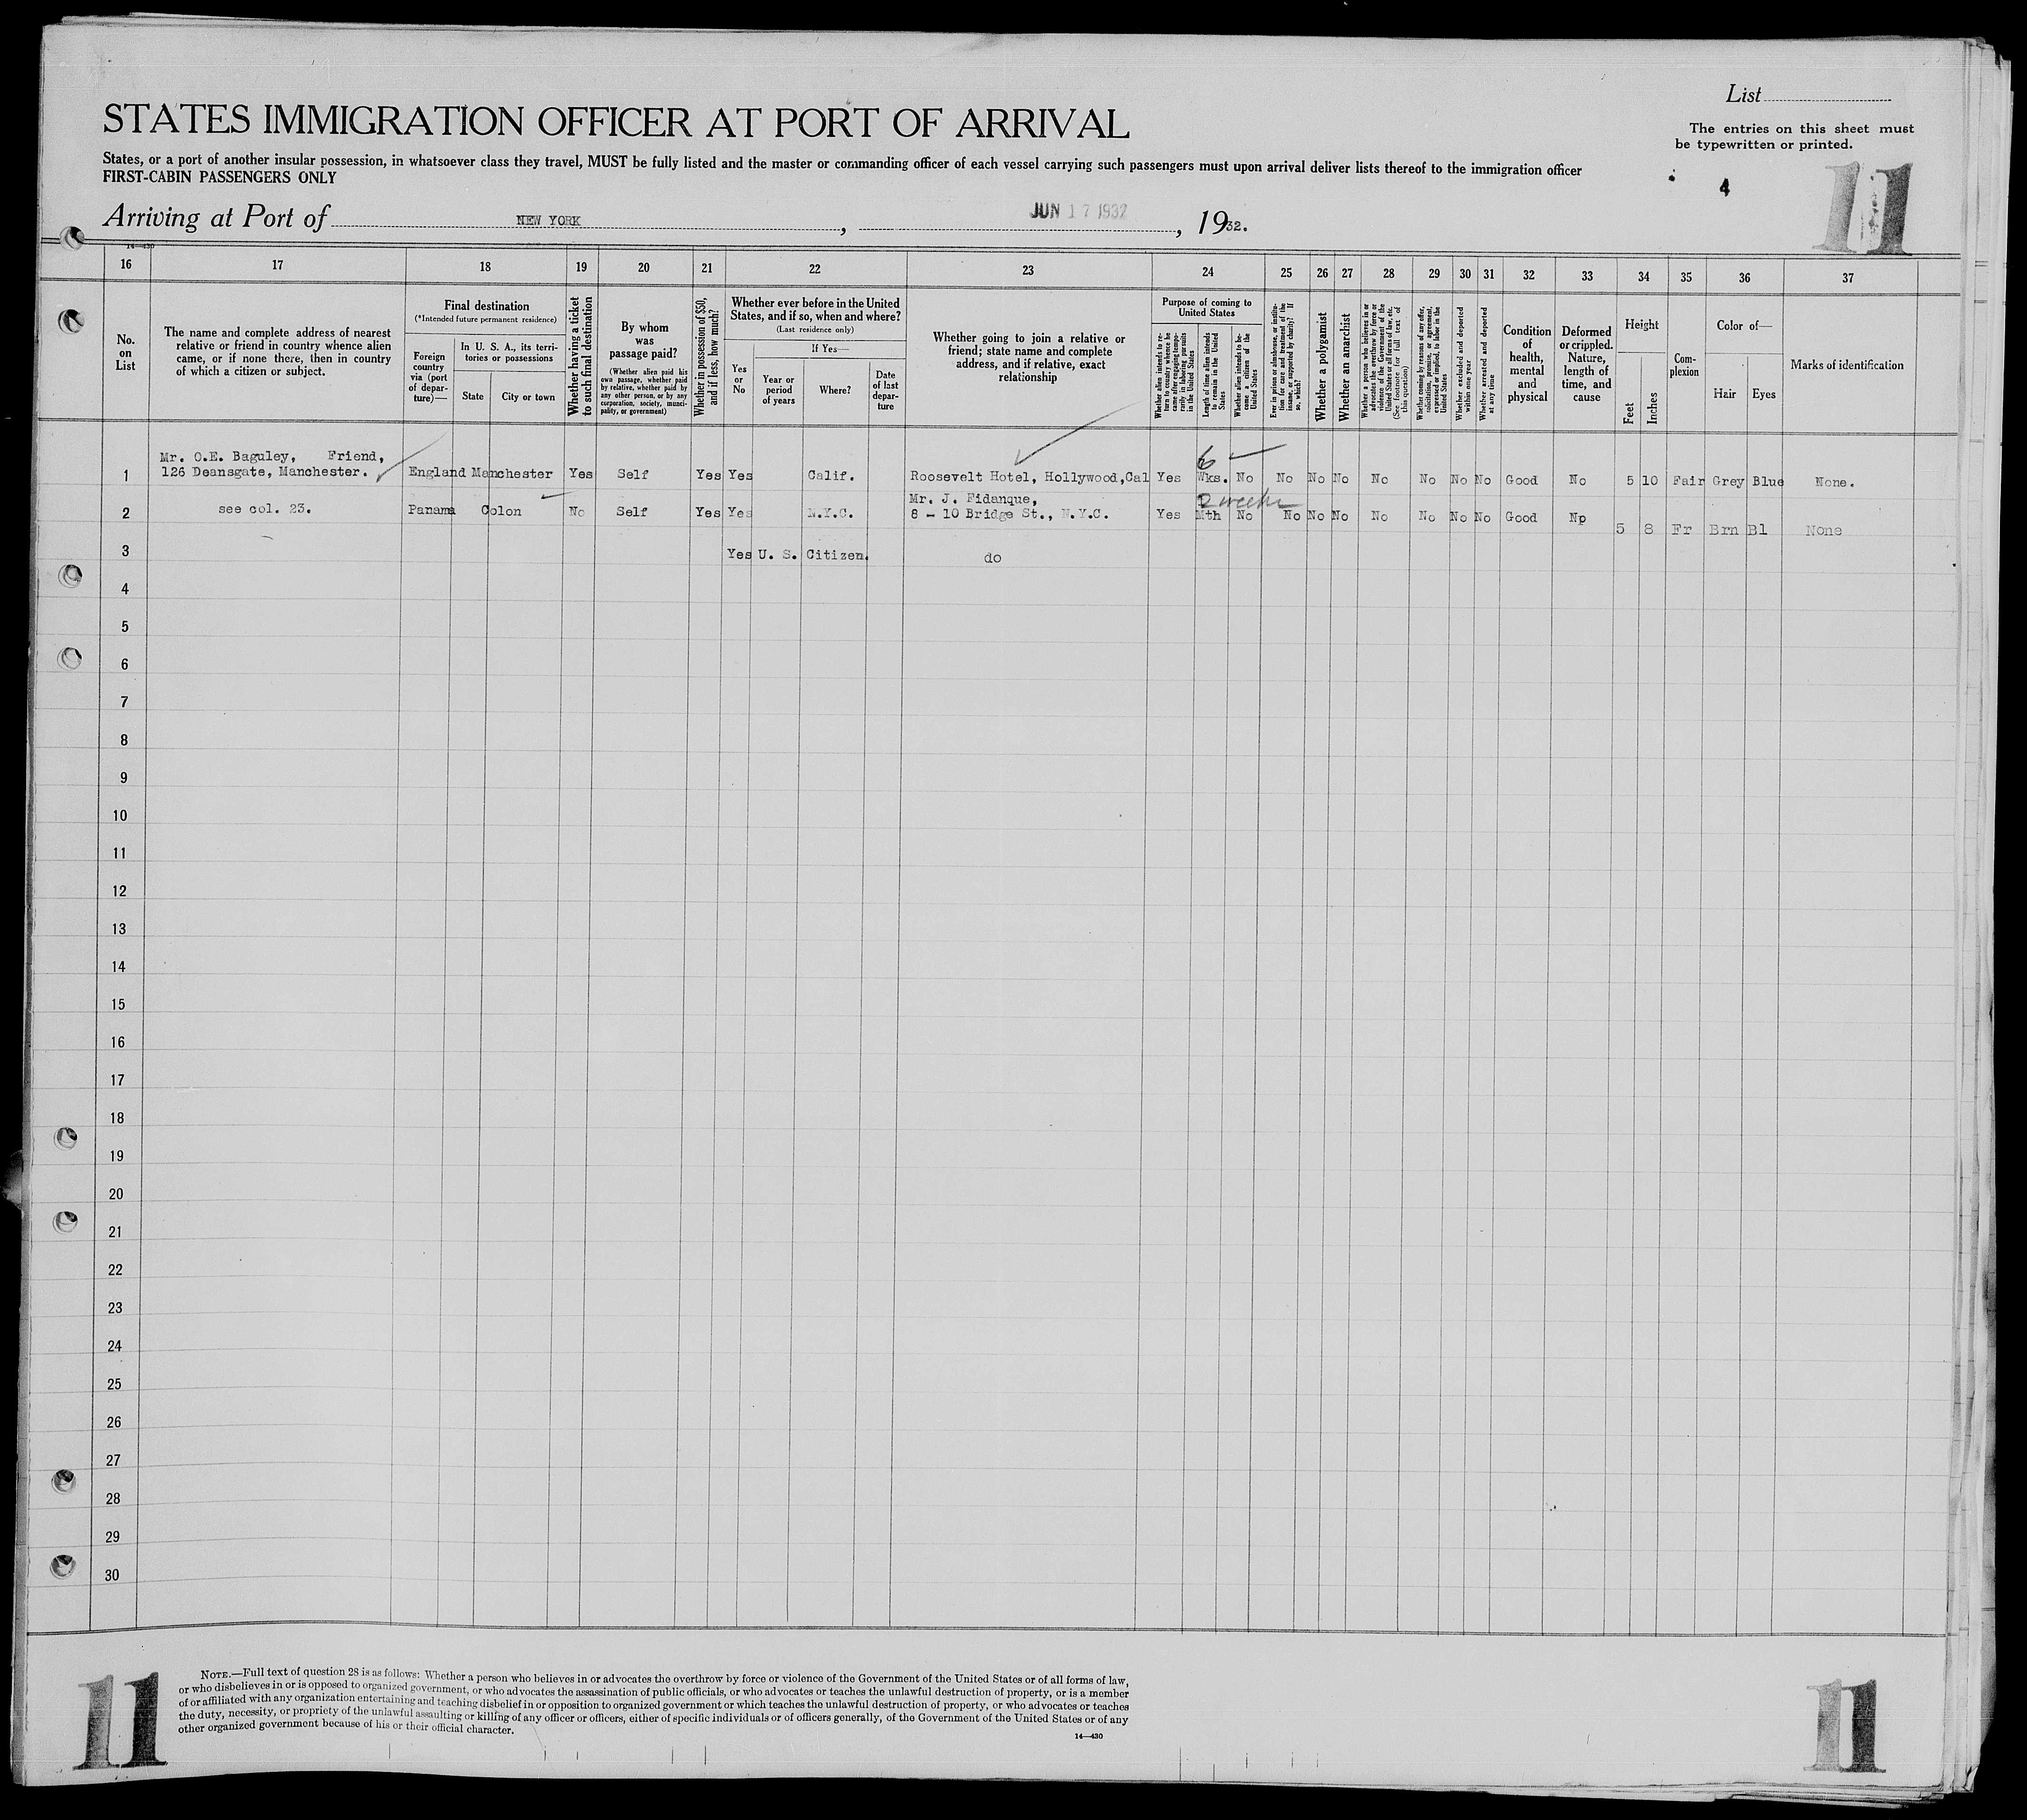 List
STATES IMMIGRATION OFFICER AT PORT OF ARRIVAL
The entries on this sheet must
be typewritten or printed.
States, or a port of another insular possession, in whatsoever class they travel, MUST be fully listed and the master or commanding officer of each vessel carrying such passengers must upon arrival deliver lists thereof to the immigration officer
FIRST-CABIN PASSENGERS ONLY
4
11
Arriving at Port of NEW YORK, JUN 17 1932, 1932.
14—430
16 17 18 19 20 21 22 23 24 25 26 27 28 29 30 31 32 33 34 35 36 37
No. on List
The name and complete address of nearest
relative or friend in country whence alien
came, or if none there, then in country
of which a citizen or subject.
Final destination
(*Intended future permanent residence)
Foreign country via (port of departure)—
In U. S. A., its territories or possessions
State
City or town
Whether having a ticket to such final destination
By whom was passage paid?
(Whether alien paid his own passage, whether paid by relative, whether paid by any other person, or by any corporation, society, municipality, or government)
Whether in possession of $50, and if less, how much?
Whether ever before in the United
States, and if so, when and where?
(Last residence only)
Yes or No
If Yes—
Year or period of years
Where?
Date of last departure
Whether going to join a relative or
friend; state name and complete
address, and if relative, exact
relationship
Purpose of coming to United States
Whether alien intends to return to country whence he came after engaging temporarily in laboring pursuits in the United States
Length of time alien intends to remain in the United States
Whether alien intends to become a citizen of the United States
Ever in prison or almshouse, or institution for care and treatment of the insane, or supported by charity? If so, which?
Whether a polygamist
Whether an anarchist
Whether a person who believes in or advocates the overthrow by force or violence of the Government of the United States or all forms of law, etc. (See footnote for full text of this question)
Whether coming by reasons of any offer, solicitation, promise, or agreement, expressed or implied, to labor in the United States
Whether excluded and deported within one year
Whether arrested and deported at any time
Condition of health, mental and physical
Deformed or crippled. Nature, length of time, and cause
Height
Feet
Inches
Complexion
Color of—
Hair
Eyes
Marks of identification
Mr. O.E. Baguley, Friend,
1 126 Deansgate, Manchester. England Manchester Yes Self Yes Yes Calif. Roosevelt Hotel, Hollywood,Cal Yes 6 Wks. No No No No No No No No Good No 5 10 Fair Grey Blue None.
Mr. J. Fidanque, 2 weeks
2 see col. 23. Panama Colon No Self Yes Yes N.Y.C. 8 - 10 Bridge St., N.Y.C. Yes Mth No No No No No No No No Good No 5 8 Fr Brn Bl None
3 Yes U. S. Citizen. do
4
5
6
7
8
9
10
11
12
13
14
15
16
17
18
19
20
21
22
23
24
25
26
27
28
29
30
11
NOTE.—Full text of question 28 is as follows: Whether a person who believes in or advocates the overthrow by force or violence of the Government of the United States or of all forms of law,
or who disbelieves in or is opposed to organized government, or who advocates the assassination of public officials, or who advocates or teaches the unlawful destruction of property, or is a member
of or affiliated with any organization entertaining and teaching disbelief in or opposition to organized government or which teaches the unlawful destruction of property, or who advocates or teaches
the duty, necessity, or propriety of the unlawful assaulting or killing of any officer or officers, either of specific individuals or of officers generally, of the Government of the United States or of any
other organized government because of his or their official character.
14—430
11